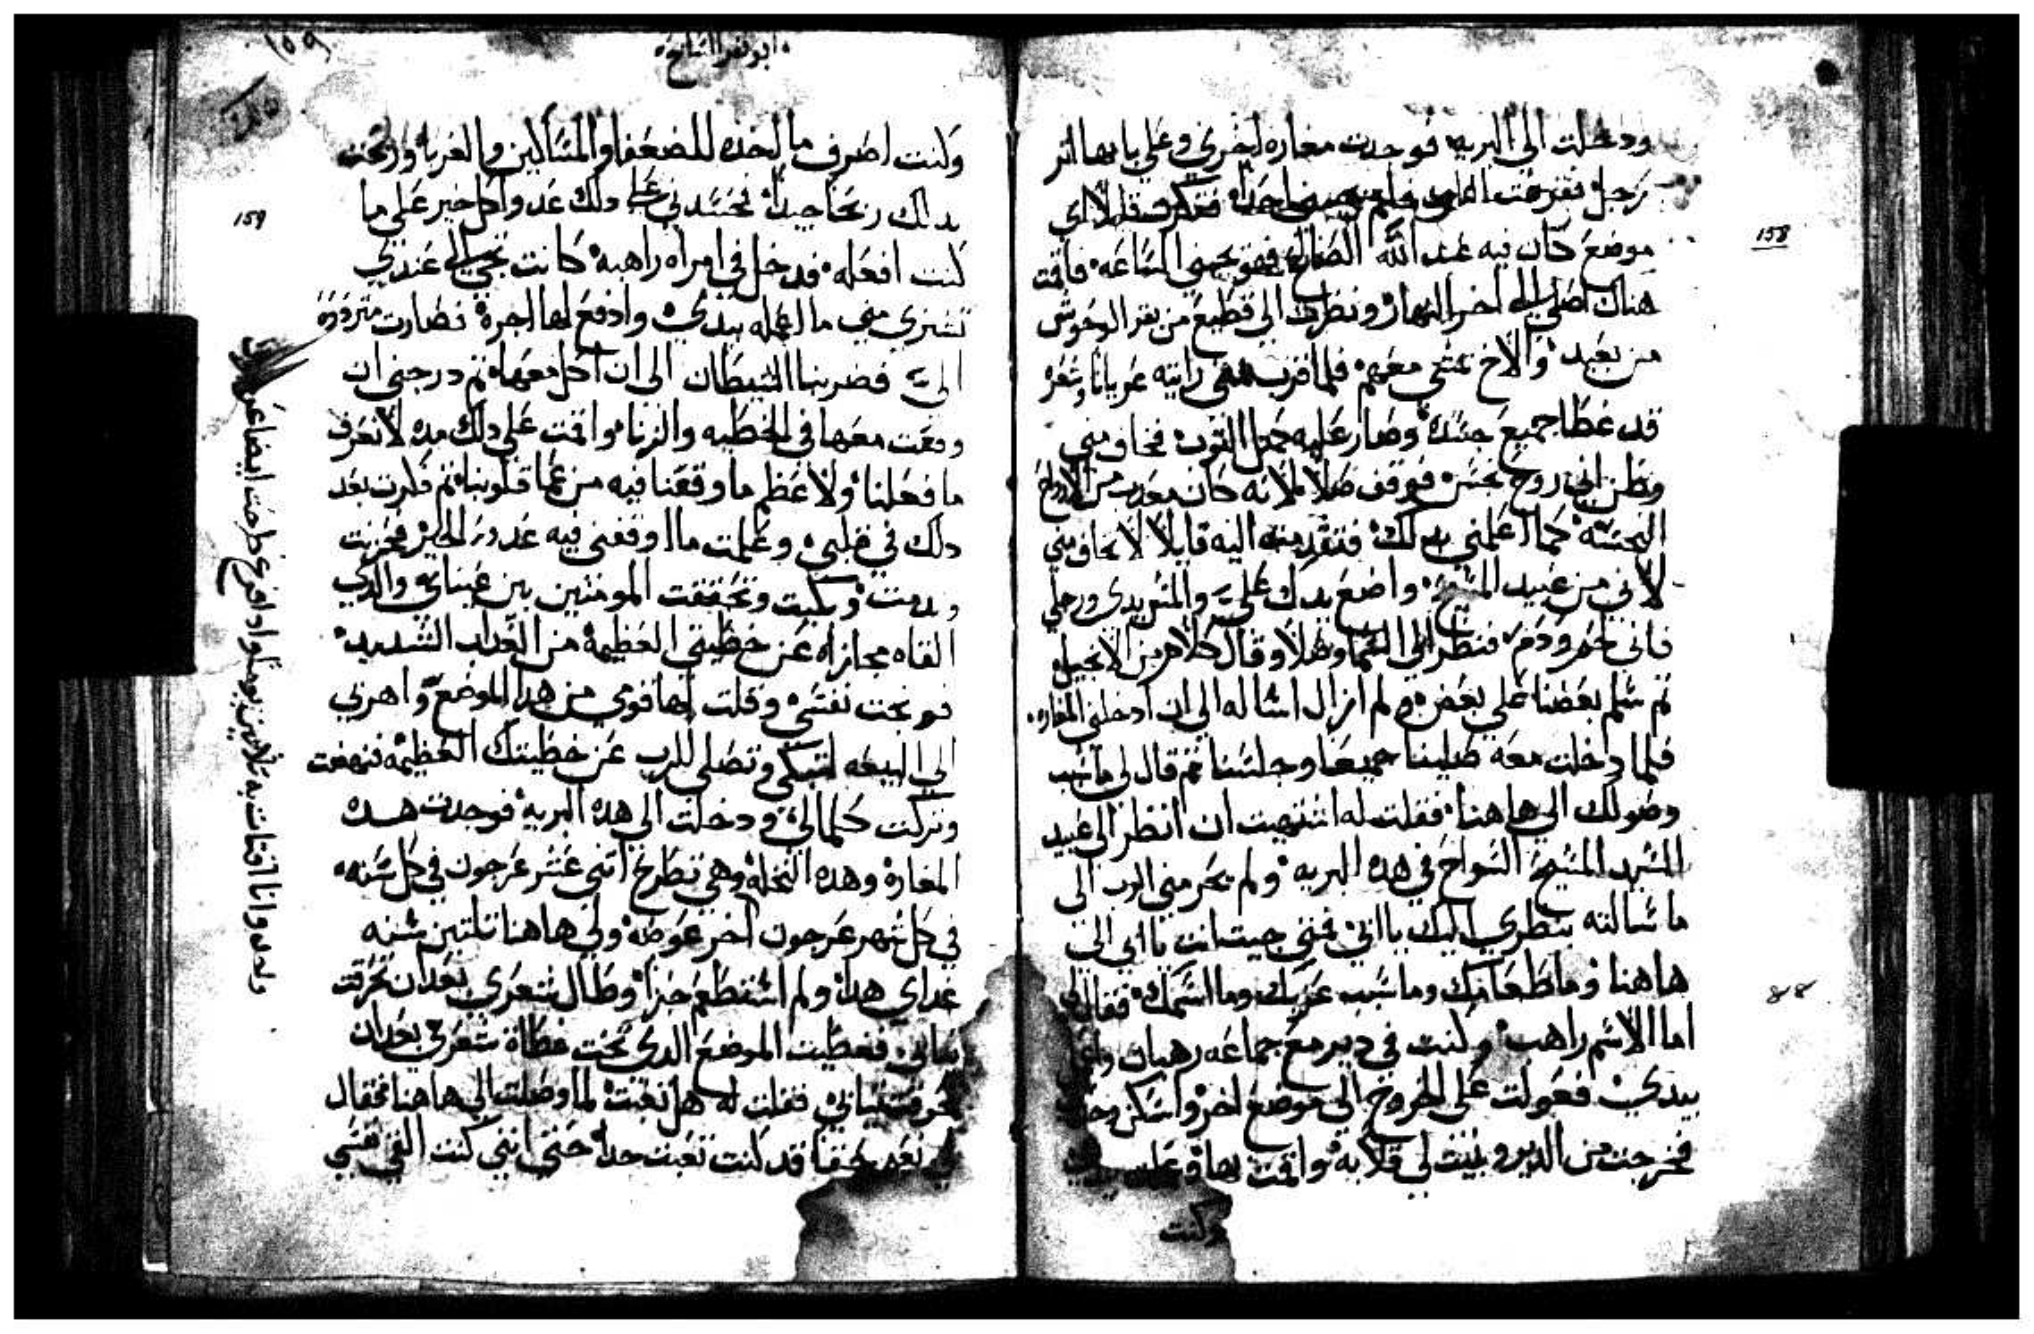 ودخلت الى البريه فوجدت مغاره اخرى وعلى بابها اثر
رجل فقرعت الباب فلم يجبني احدا ففكرت قايلا اي
موضع كان فيه عبد الله الصالح فهو يجي الساعه فاقمت
هناك اصلي الى اخر النهار ونظرت الى قطيع من بقر الوحوش
من بعيد والاخ يمشي معهم فلما قرب مني رايته عريانا وشعره
قد غطا جميع جسده وصار عليه مثل التوب فخاف مني
وظن اني روح نجس فوقف صلا لانه كان معدب من الارواح
النجسه كما اعلمني بدلك فتقدمت اليه قايلا لا تخاف مني
لاني من عبيد المسيح واضع يدك علي والمس يدي ورجلي
فاني لحم ودم فنظر الى السما وصلا وقال كلام من الانجيل
تم سلم بعضنا على بعض ولم ازال اساله الى ان ادخلني المغاره
فلما دخلت معه صلينا جميعا وجلسنا تم قال لي ما سبب
وصولك الى هاهنا فقلت له اشتهيت ان انظر الى عبيد
السيد المسيح السواح في هده البريه ولم يحرمني الرب الى
ما سالته بنظري اليك يا ابي فمتى جيت انت يا ابي الى
هاهنا وما طعامك وما سبب عريك وما اسمك فقال لي
اما الاسم راهب وكنت في دير مع جماعه رهبان
بيدي فعولت على الخروج الى موضع اخر واسكن
فخرجت من الدير وبنيت لي قلايه واقمت بها
وكنت
158
88
ابو نفر السايح
159
وكنت اصرف ما اخده للضعفا والمساكين والغربا وربحت
بدلك ربحا جيدا فحسدني على دلك عدو كل خير على ما
كنت افعله فدخل في امراه راهبه كانت تجي الى عندي
تشتري مني ما اعمله بيدي وادفع لها اجرة فصارت متردده
الي فضربنا الشيطان الى ان اكل معها تم درجني ان
وقعت معها في الخطيه والزنا واقمت على دلك مده لا نعرف
ما فعلنا ولا عظم ما وقعنا فيه من عما قلوبنا تم فكرت بعد
دلك في قلبي وعلمت ما اوقعني فيه عدو الخير فحزنت
وندمت وبكيت وتحققت الموت بين عيناي والدي
القاه مجازاه عن خطيتي العظيمه من العداب الشديد
فوبخت نفسي وقلت لها قومي من هدا الموضع واهربي
الى البيعه لتبكي وتصلي للرب عن خطيتك العظيمه فنهضت
وتركت كلما لي ودخلت الى هده البريه فوجدت هده
المغارة وهده النخله وهي تطرح اتني عشر عرجون في كل سنه
في كل شهر عرجون اخر عوضه ولي هاهنا تلتين سنه
غداي هدا ولم استطعم خبزا وطال شعري بعد ان تخرقت
تيابي فغطيت الموضع الدي تحت غطاة شعري بعد ان
تخرقت تيابي فقلت له هل تعبت لما وصلت الى هاهنا فقال
لي نعم حقا قد كنت تعبت جدا حتى انني كنت القي نفسي